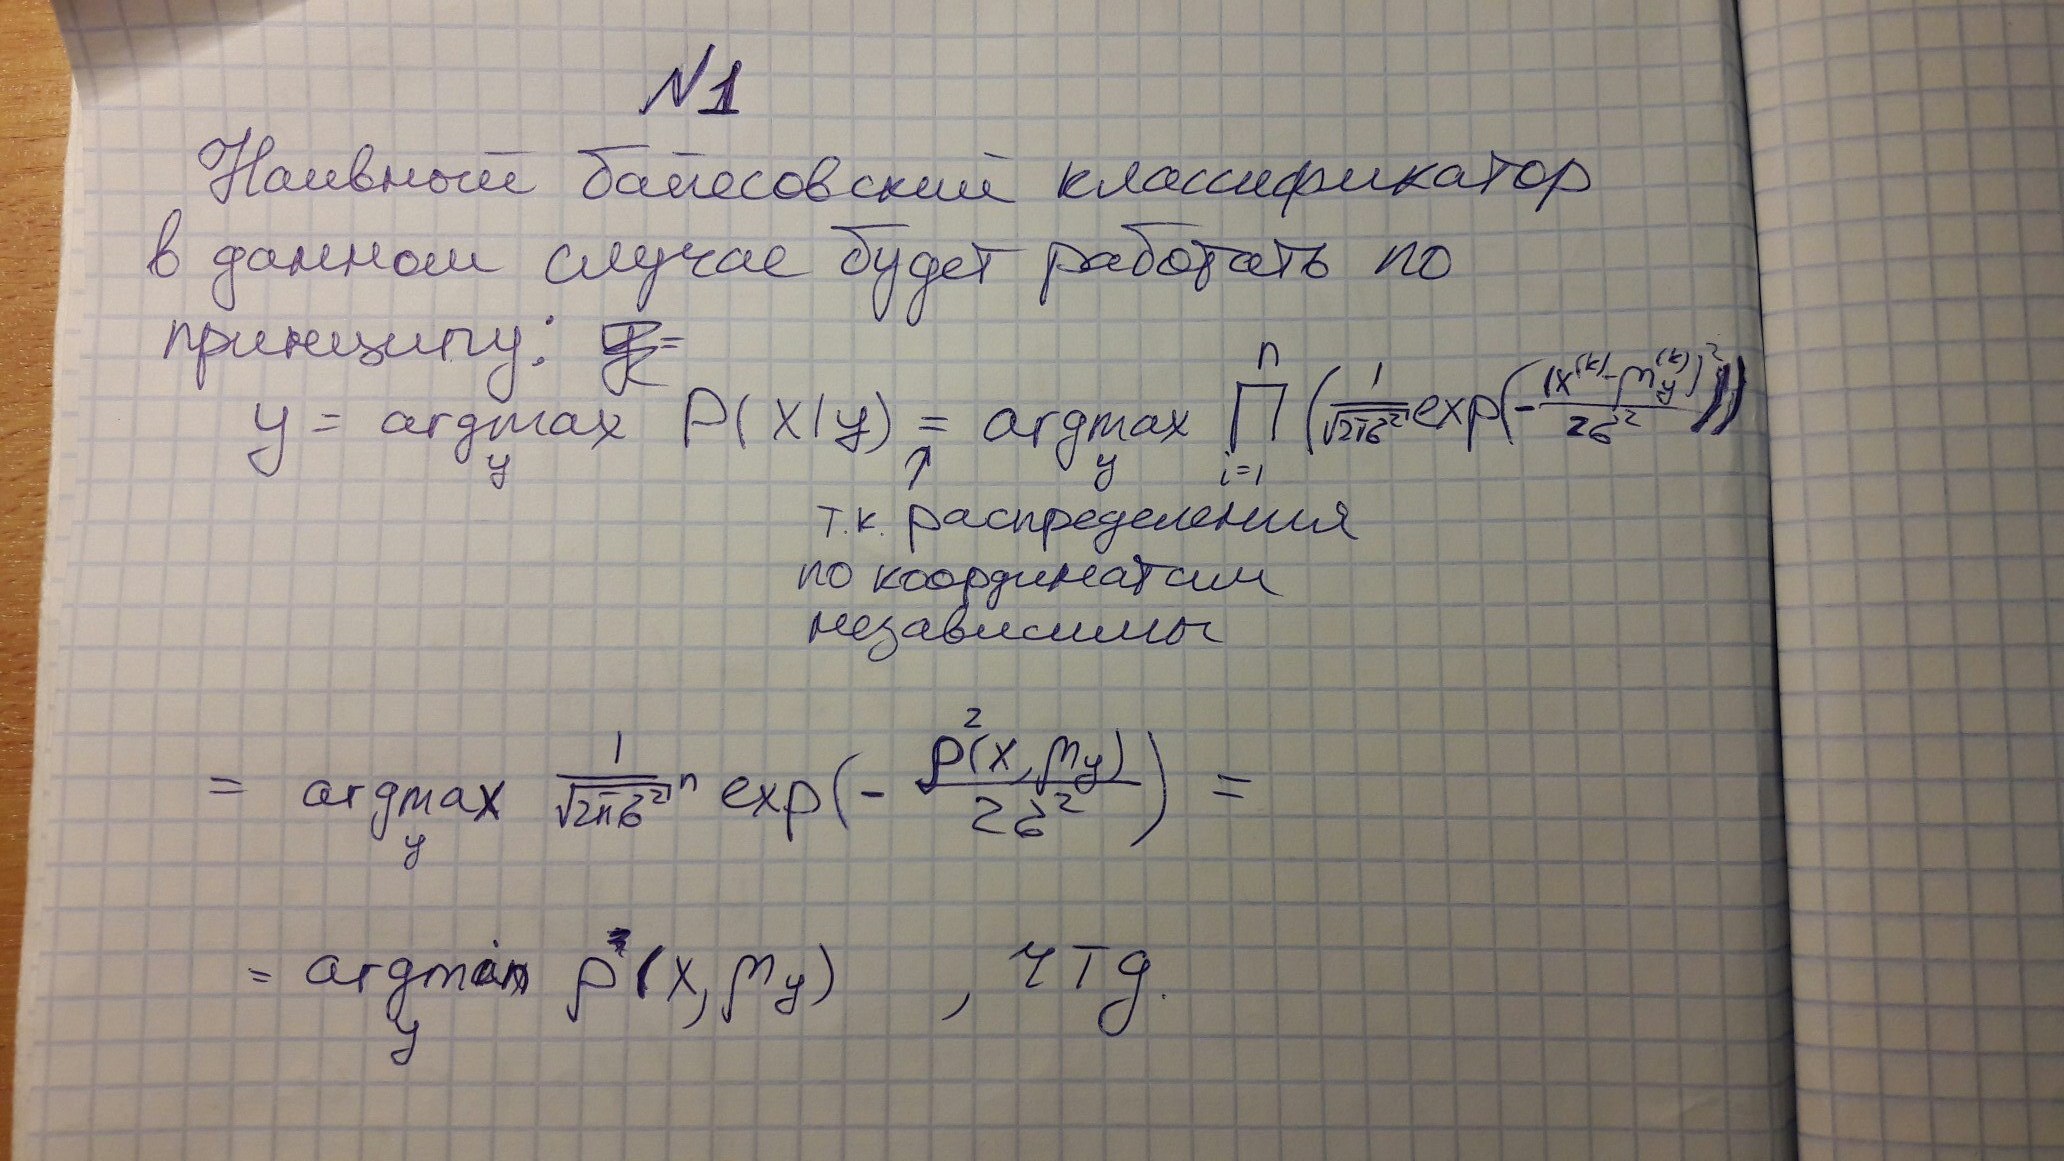 N1
Наивный байесовский классификатор
в данном случае будет работать по
принципу:
y = argmax_y P(X|y) = argmax_y ∏_{i=1}^{n} (1/√(2πσ²) exp(-(x^{(k)}-μ_y^{(k)})²/2σ²))
т.к. распределения
по координатам
независимы
= argmax_y 1/√(2πσ²)^n exp(-ρ²(X, μ_y)/2σ²) =
= argmin_y ρ(X, μ_y) , чтд.